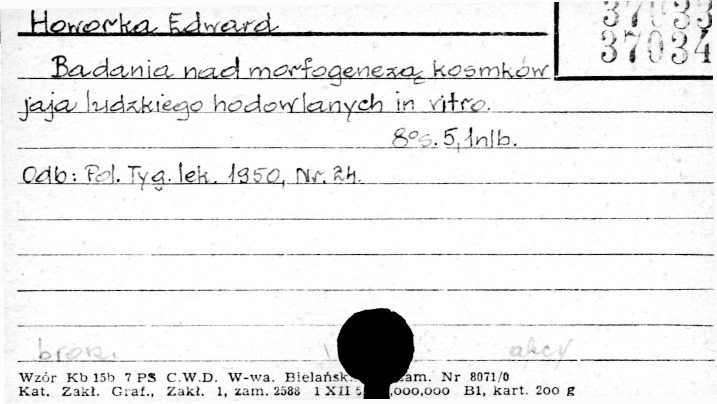 Howorka Edward
37033
37034
Badania nad morfogenezą kosmków
jaja ludzkiego hodowlanych in vitro.
8° s. 5, 1 nlb.
Odb: Pol. Tyg. lek. 1950, Nr. 24.
bros.
Wzór Kb 15b 7 PS C.W.D. W-wa. Bielańsk zam. Nr 8071/0
Kat. Zakł. Graf., Zakł. 1, zam. 2588 1 XII ,000,000 B1, kart. 200 g